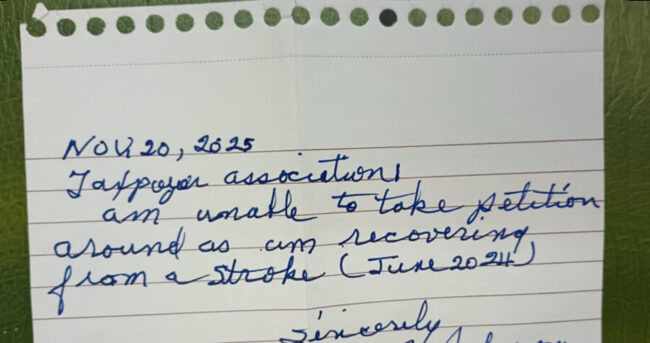 Nov, 20, 2025
Taxpayer association,
am unable to take petition
around as am recovering
from a stroke (June 2024)
Sincerely